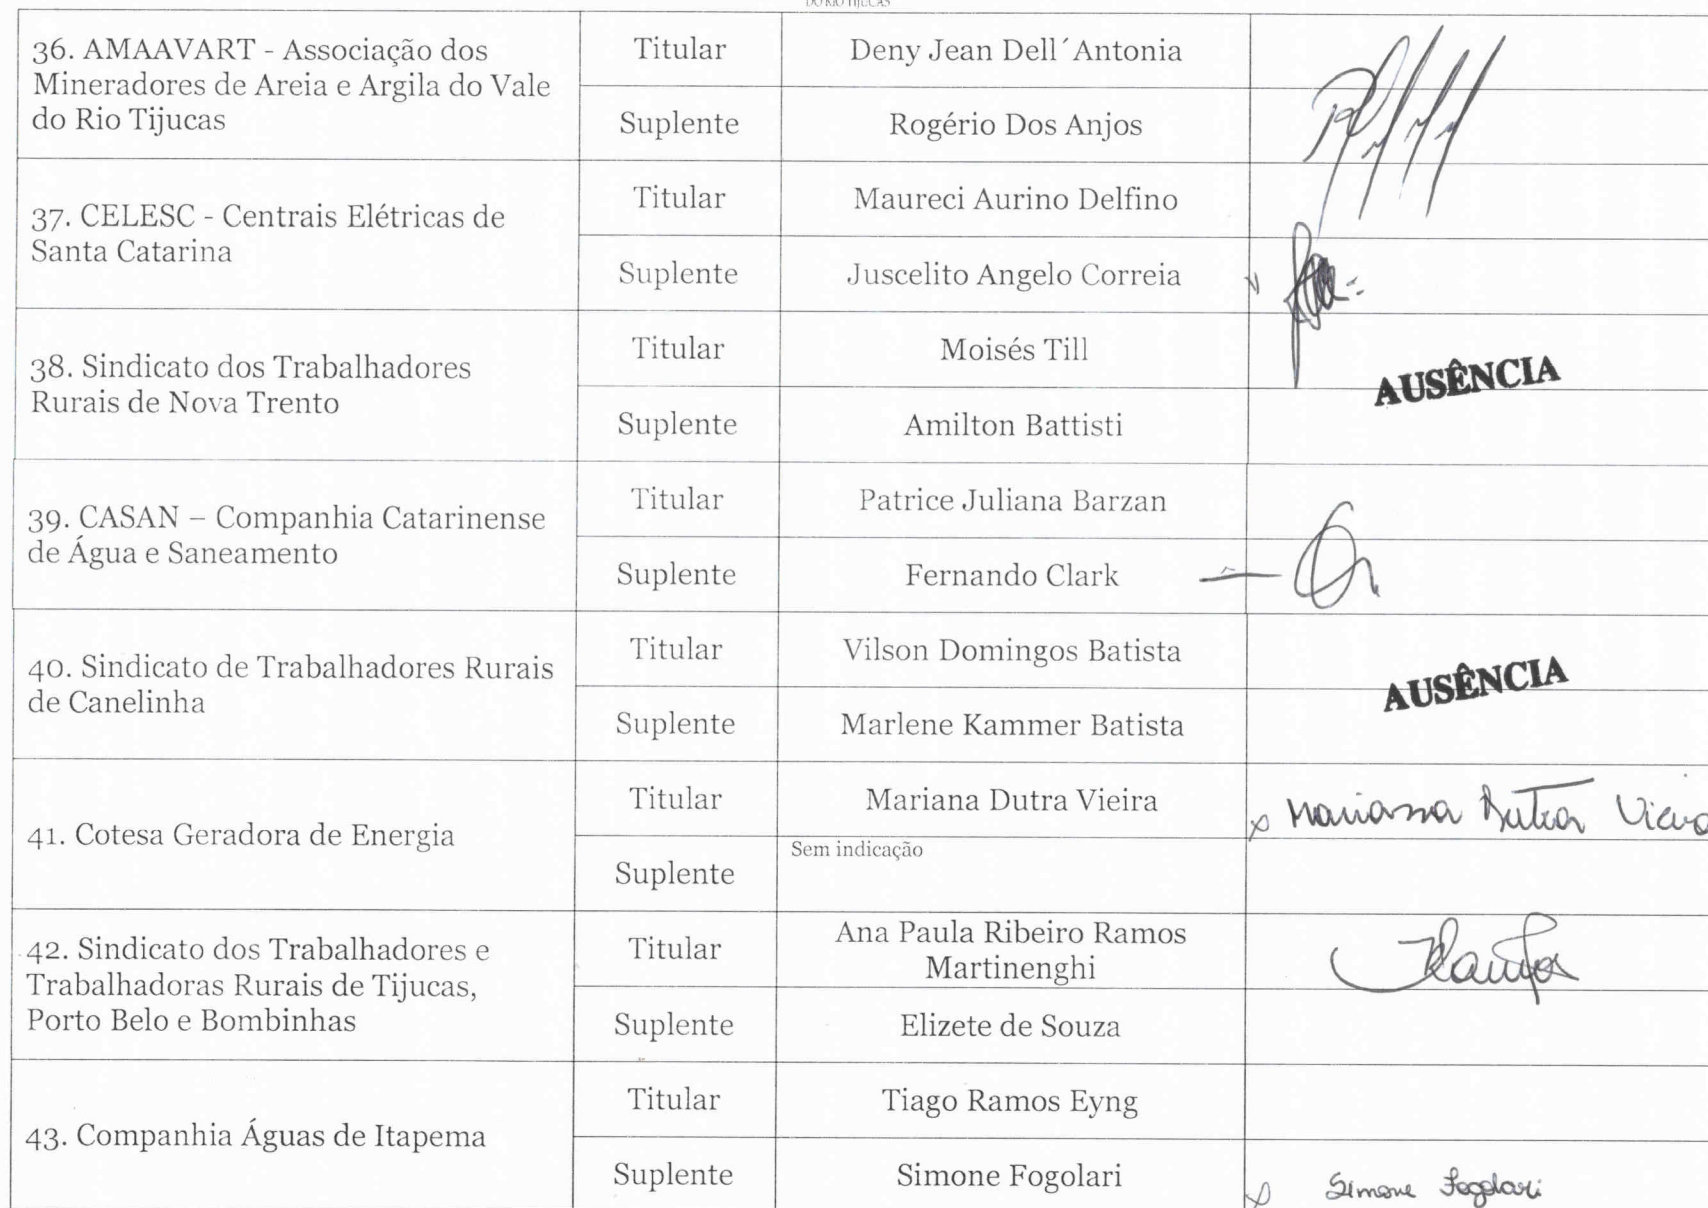 DO RIO TIJUCAS
36. AMAAVART - Associação dos
Mineradores de Areia e Argila do Vale
do Rio Tijucas
Titular
Deny Jean Dell´Antonia
Suplente
Rogério Dos Anjos
37. CELESC - Centrais Elétricas de
Santa Catarina
Titular
Maureci Aurino Delfino
Suplente
Juscelito Angelo Correia
38. Sindicato dos Trabalhadores
Rurais de Nova Trento
Titular
Moisés Till
AUSÊNCIA
Suplente
Amilton Battisti
39. CASAN – Companhia Catarinense
de Água e Saneamento
Titular
Patrice Juliana Barzan
Suplente
Fernando Clark
40. Sindicato de Trabalhadores Rurais
de Canelinha
Titular
Vilson Domingos Batista
AUSÊNCIA
Suplente
Marlene Kammer Batista
41. Cotesa Geradora de Energia
Titular
Mariana Dutra Vieira
x Mariana Dutra Vieira
Suplente
Sem indicação
42. Sindicato dos Trabalhadores e
Trabalhadoras Rurais de Tijucas,
Porto Belo e Bombinhas
Titular
Ana Paula Ribeiro Ramos
Martinenghi
Suplente
Elizete de Souza
43. Companhia Águas de Itapema
Titular
Tiago Ramos Eyng
Suplente
Simone Fogolari
x Simone Fogolari